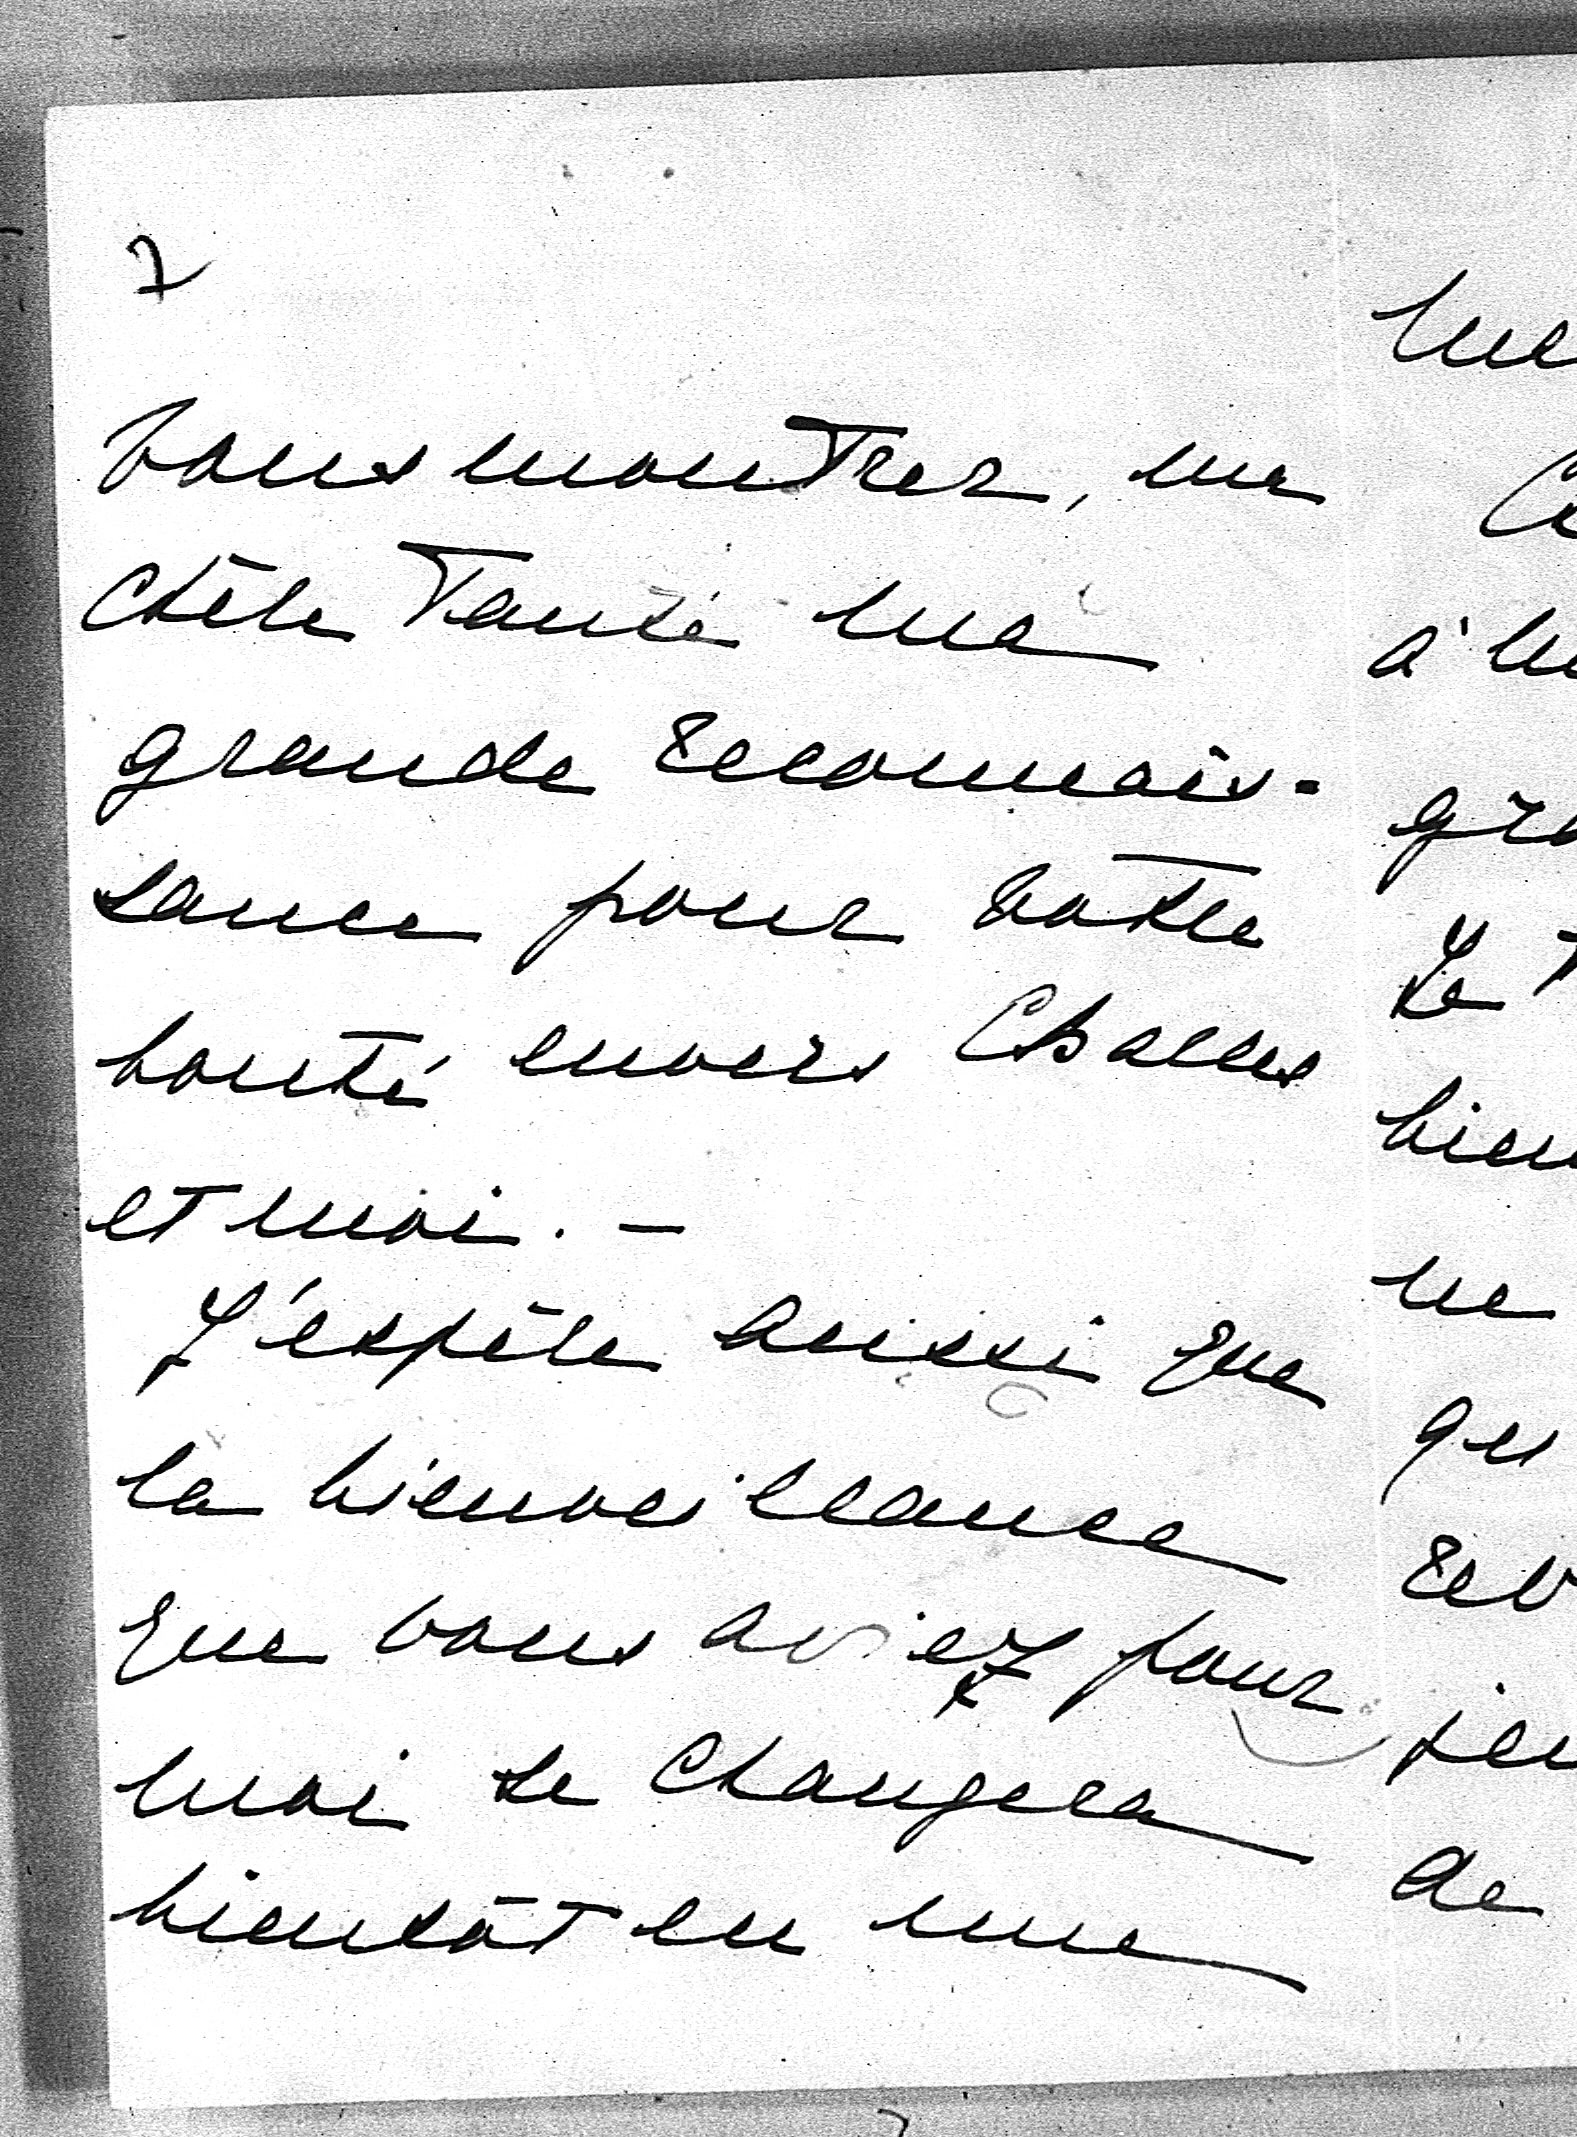 7
vous montrer, ma
chère Tante ma
grande reconnais-
sance pour votre
bonté envers Charles
et moi. —
J'espère aussi que
la bienveillance
que vous aviez pour
moi se changera
bientôt en une
me
à m
gra
Se T
bien
ne
qu
rev
de